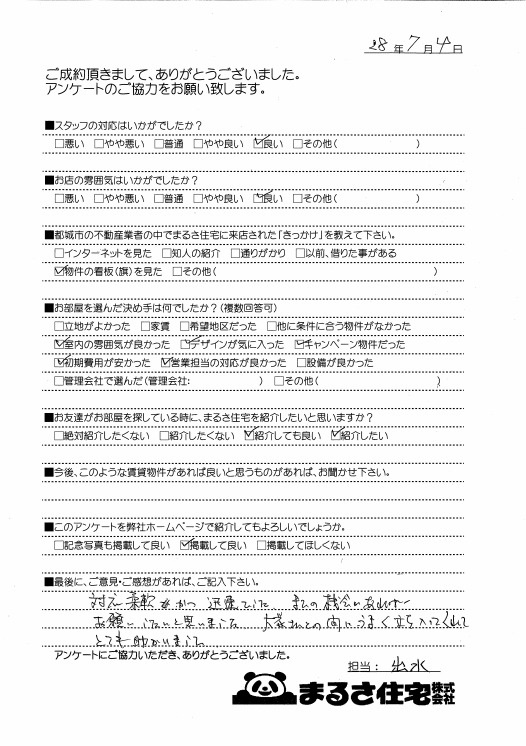 28年7月4日
ご成約頂きまして、ありがとうございました。
アンケートのご協力をお願い致します。
■スタッフの対応はいかがでしたか？
□悪い □やや悪い □普通 □やや良い ☑良い □その他( )
■お店の雰囲気はいかがでしたか？
□悪い □やや悪い □普通 □やや良い ☑良い □その他( )
■都城市の不動産業者の中でまるさ住宅に来店された「きっかけ」を教えて下さい。
□インターネットを見た □知人の紹介 □通りがかり □以前、借りた事がある
☑物件の看板(旗)を見た □その他( )
■お部屋を選んだ決め手は何でしたか？(複数回答可)
□立地がよかった □家賃 □希望地区だった □他に条件に合う物件がなかった
☑室内の雰囲気が良かった ☑デザインが気に入った ☑キャンペーン物件だった
☑初期費用が安かった ☑営業担当の対応が良かった □設備が良かった
□管理会社で選んだ(管理会社: ) □その他( )
■お友達がお部屋を探している時に、まるさ住宅を紹介したいと思いますか？
□絶対紹介したくない □紹介したくない ☑紹介しても良い ☑紹介したい
■今後、このような賃貸物件があれば良いと思うものがあれば、お聞かせ下さい。
■このアンケートを弊社ホームページで紹介してもよろしいでしょうか。
□記念写真も掲載して良い ☑掲載して良い □掲載してほしくない
■最後に、ご意見・ご感想があれば、ご記入下さい。
対応 柔軟 かつ 迅速でした またの機会があれば
お願いしたいと思いました 大家さんとの間にうまく立ち入ってくれて
とても助かりました
アンケートにご協力いただき、ありがとうございました。
担当: 出水
まるさ住宅株式会社